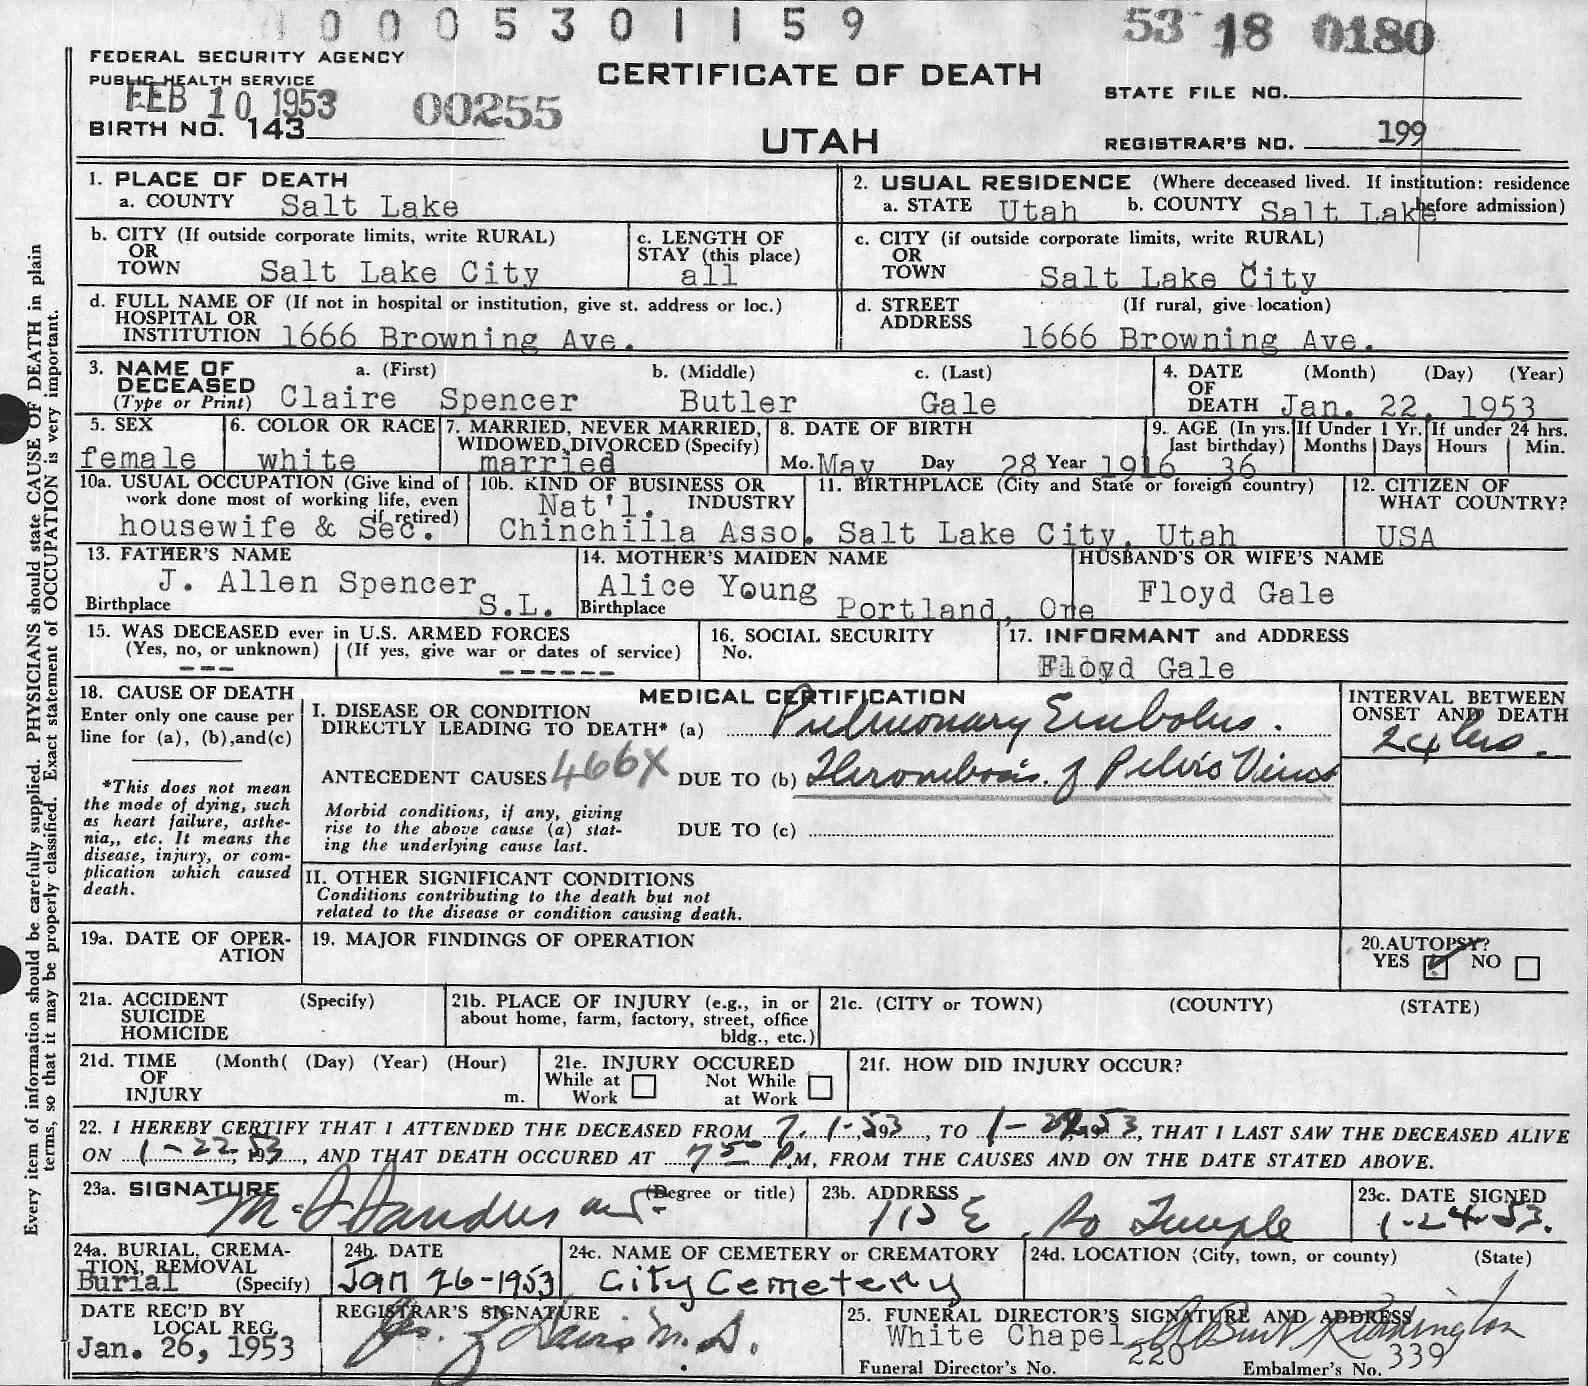 0 0 0 5 3 0 1 1 5 9
53 18 0180
FEDERAL SECURITY AGENCY
PUBLIC HEALTH SERVICE
FEB 10 1953
00255
CERTIFICATE OF DEATH
STATE FILE NO.
BIRTH NO. 143
UTAH
REGISTRAR'S NO. 199
1. PLACE OF DEATH
a. COUNTY Salt Lake
2. USUAL RESIDENCE (Where deceased lived. If institution: residence before admission)
a. STATE Utah b. COUNTY Salt Lake
b. CITY (If outside corporate limits, write RURAL)
OR
TOWN Salt Lake City
c. LENGTH OF
STAY (this place)
all
c. CITY (if outside corporate limits, write RURAL)
OR
TOWN Salt Lake City
d. FULL NAME OF (If not in hospital or institution, give st. address or loc.)
HOSPITAL OR
INSTITUTION 1666 Browning Ave.
d. STREET (If rural, give location)
ADDRESS
1666 Browning Ave.
3. NAME OF DECEASED
(Type or Print)
a. (First) b. (Middle) c. (Last)
Claire Spencer Butler Gale
4. DATE OF DEATH (Month) (Day) (Year)
Jan. 22, 1953
5. SEX
female
6. COLOR OR RACE
white
7. MARRIED, NEVER MARRIED,
WIDOWED, DIVORCED (Specify)
married
8. DATE OF BIRTH
Mo. May Day 28 Year 1916
9. AGE (In yrs. last birthday)
36
If Under 1 Yr.
Months Days
If under 24 hrs.
Hours Min.
10a. USUAL OCCUPATION (Give kind of
work done most of working life, even
if retired)
housewife & Sec.
10b. KIND OF BUSINESS OR
INDUSTRY
Nat'l.
Chinchilla Asso.
11. BIRTHPLACE (City and State or foreign country)
Salt Lake City, Utah
12. CITIZEN OF
WHAT COUNTRY?
USA
13. FATHER'S NAME
J. Allen Spencer
Birthplace S.L.
14. MOTHER'S MAIDEN NAME
Alice Young
Birthplace Portland, Ore
HUSBAND'S OR WIFE'S NAME
Floyd Gale
15. WAS DECEASED ever in U.S. ARMED FORCES
(Yes, no, or unknown) (If yes, give war or dates of service)
--- ------
16. SOCIAL SECURITY
No.
17. INFORMANT and ADDRESS
Floyd Gale
18. CAUSE OF DEATH
Enter only one cause per
line for (a), (b), and (c)
*This does not mean
the mode of dying, such
as heart failure, asthe-
nia,, etc. It means the
disease, injury, or com-
plication which caused
death.
MEDICAL CERTIFICATION
I. DISEASE OR CONDITION
DIRECTLY LEADING TO DEATH* (a) Pulmonary Embolus.
ANTECEDENT CAUSES 466X DUE TO (b) Thrombosis of Pelvis Veins
Morbid conditions, if any, giving
rise to the above cause (a) stat-
ing the underlying cause last.
DUE TO (c)
INTERVAL BETWEEN
ONSET AND DEATH
24 hrs.
II. OTHER SIGNIFICANT CONDITIONS
Conditions contributing to the death but not
related to the disease or condition causing death.
19a. DATE OF OPER-
ATION
19. MAJOR FINDINGS OF OPERATION
20. AUTOPSY?
YES ☑ NO ☐
21a. ACCIDENT (Specify)
SUICIDE
HOMICIDE
21b. PLACE OF INJURY (e.g., in or
about home, farm, factory, street, office
bldg., etc.)
21c. (CITY or TOWN) (COUNTY) (STATE)
21d. TIME (Month( (Day) (Year) (Hour)
OF
INJURY m.
21e. INJURY OCCURED
While at Work ☐ Not While at Work ☐
21f. HOW DID INJURY OCCUR?
22. I HEREBY CERTIFY THAT I ATTENDED THE DECEASED FROM 1-53, TO 1-22-53, THAT I LAST SAW THE DECEASED ALIVE
ON 1-22-53, AND THAT DEATH OCCURED AT 7 50 P.M, FROM THE CAUSES AND ON THE DATE STATED ABOVE.
23a. SIGNATURE (Degree or title)
23b. ADDRESS
115 E So Temple
23c. DATE SIGNED
1-24-53.
24a. BURIAL, CREMA-
TION, REMOVAL
(Specify)
Burial
24b. DATE
Jan 26-1953
24c. NAME OF CEMETERY or CREMATORY
City Cemetery
24d. LOCATION (City, town, or county) (State)
DATE REC'D BY
LOCAL REG.
Jan. 26, 1953
REGISTRAR'S SIGNATURE
Davis M.D.
25. FUNERAL DIRECTOR'S SIGNATURE AND ADDRESS
White Chapel
Funeral Director's No. 220 Embalmer's No. 339
Every item of information should be carefully supplied. PHYSICIANS should state CAUSE OF DEATH in plain
terms, so that it may be properly classified. Exact statement of OCCUPATION is very important.